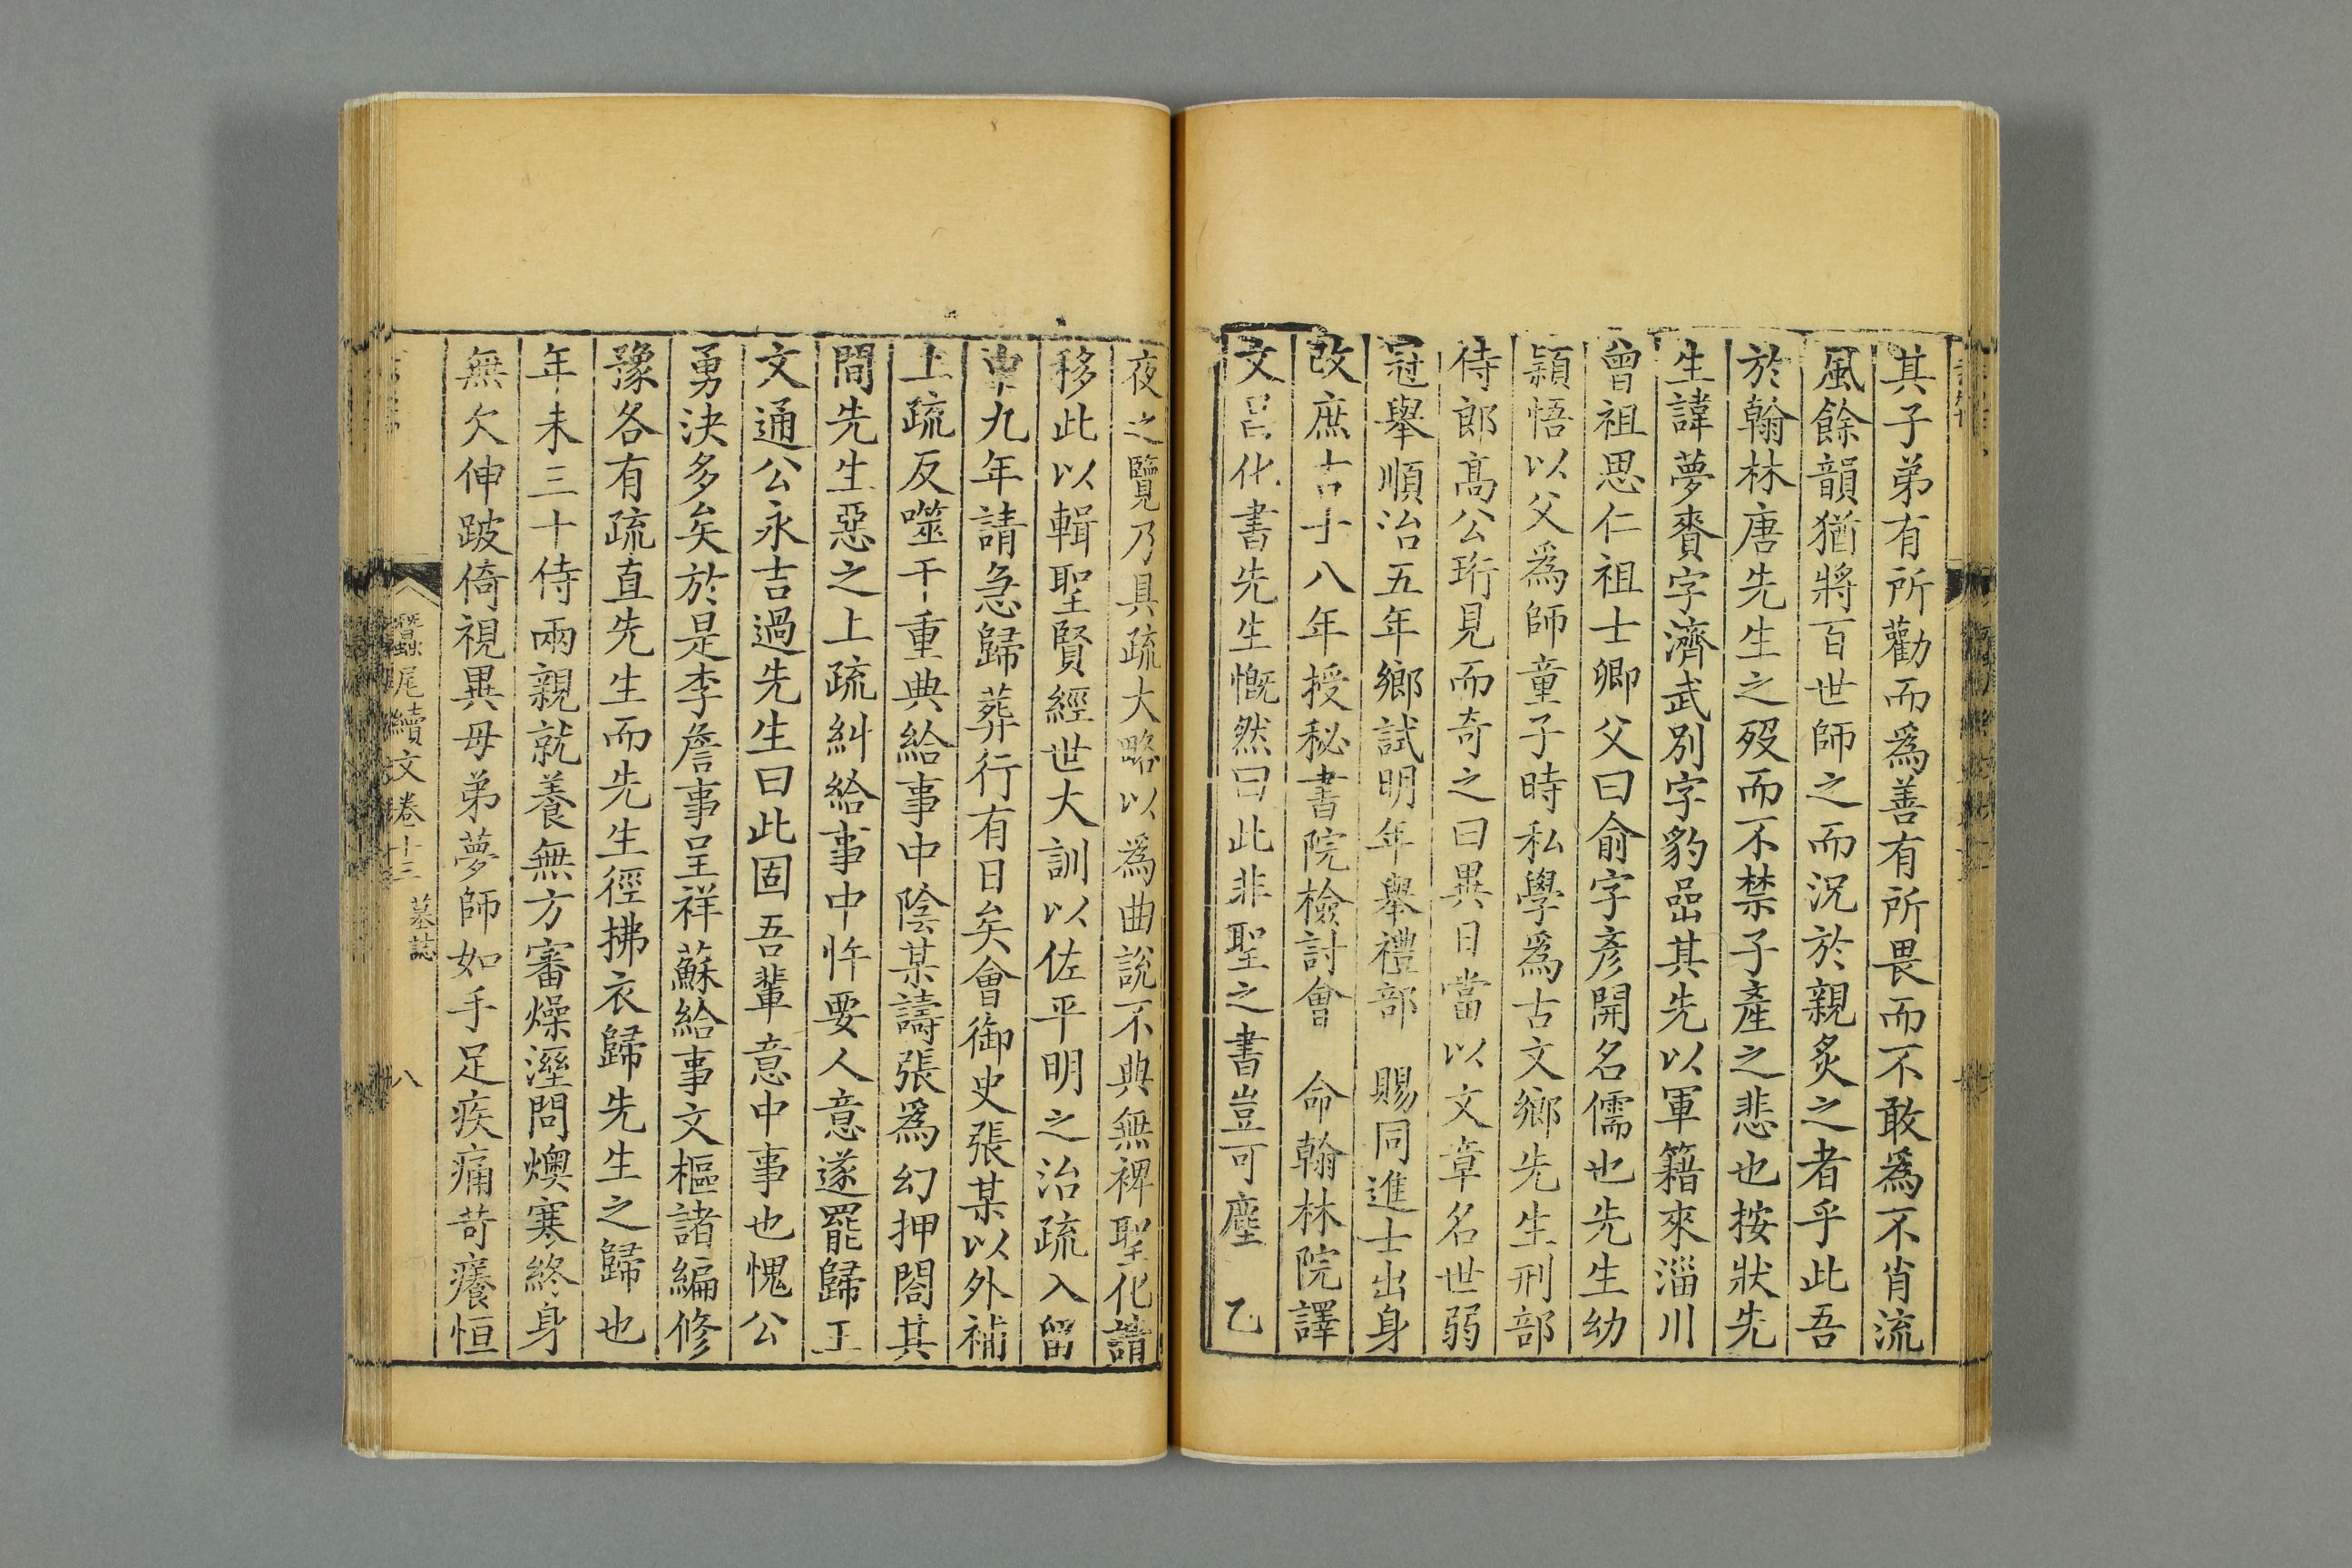 其子弟有所勸而爲善有所畏而不敢爲不肖流
風餘韻猶將百世師之而況於親炙之者乎此吾
於翰林唐先生之歿而不禁子產之悲也按狀先
生諱夢賚字濟武別字豹嵒其先以軍籍來淄川
曾祖思仁祖士卿父曰俞字彥開名儒也先生幼
穎悟以父爲師童子時私學爲古文鄉先生刑部
侍郎高公珩見而奇之曰異日當以文章名世弱
冠舉順治五年鄉試明年舉禮部 賜同進士出身
改庶吉士八年授秘書院檢討會 命翰林院譯
文昌化書先生慨然曰此非聖之書豈可塵 乙
夜之覽乃具疏大略以爲曲說不典無裨聖化請
移此以輯聖賢經世大訓以佐平明之治疏入留
中九年請急歸葬行有日矣會御史張某以外補
上疏反噬干重典給事中陰某譸張爲幻押閤其
間先生惡之上疏糾給事中忤要人意遂罷歸王
文通公永吉過先生曰此固吾輩意中事也愧公
勇決多矣於是李詹事呈祥蘇給事文樞諸編修
豫各有疏直先生而先生徑拂衣歸先生之歸也
年未三十侍兩親就養無方審燥溼問燠寒終身
無欠伸跛倚視異母弟夢師如手足疾痛苛癢恒
蠶尾續文卷十三 墓誌 八